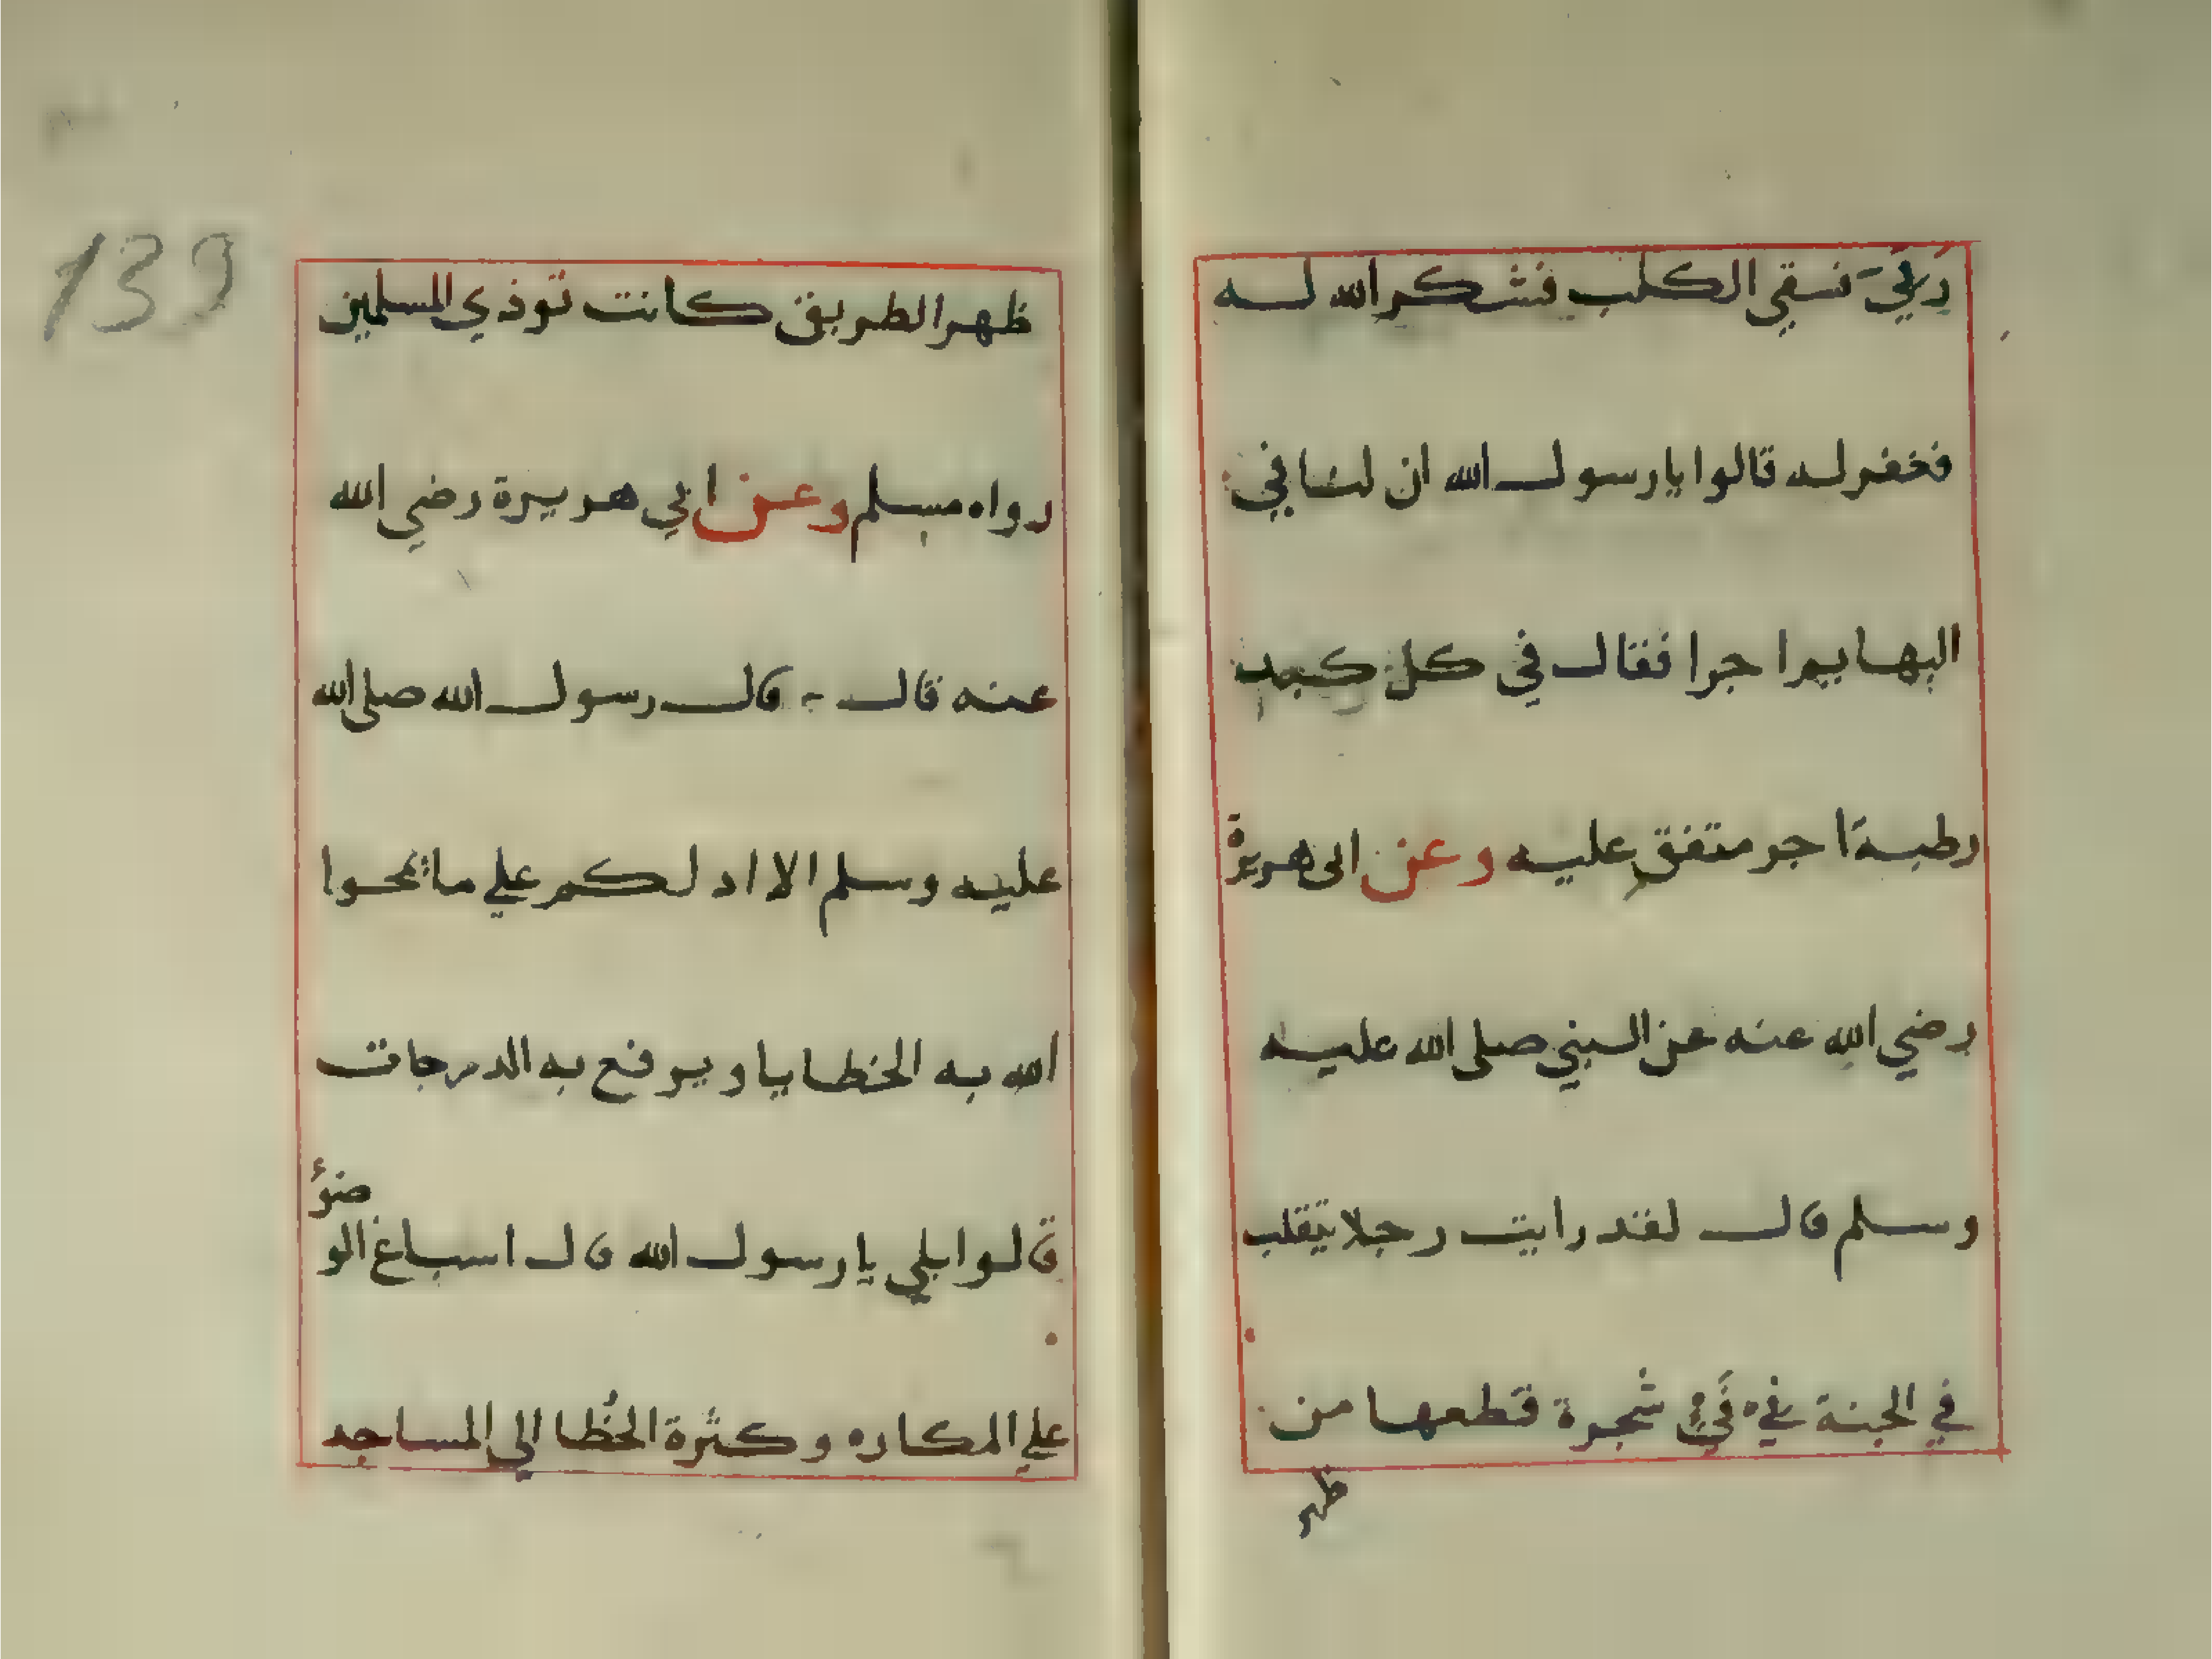 رَقِيَ فسقي الكلب فشكر الله لـه
فغفر له قالوا يا رسول الله ان لنا في
البهايم اجرا فقال في كل كبد
رطبة اجر متفق عليه وعن ابى هريرة
رضي الله عنه عن النبي صلى الله عليه
وسلم قال لقد رايت رجلا يتقلب
في الجنة في شجرة قطعها من
ظهر
133
ظهر الطريق كانت توذي المسلمين
رواه مسلم وعن ابي هريرة رضي الله
عنه قال قال رسول الله صلى الله
عليه وسلم الا ادلكم علي ما يمحوا
الله به الخطايا ويرفع به الدرجات
قالوا بلي يا رسول الله قال اسباغ الو
ضوءُ
علي المكاره وكثرة الخُطا الي المساجد